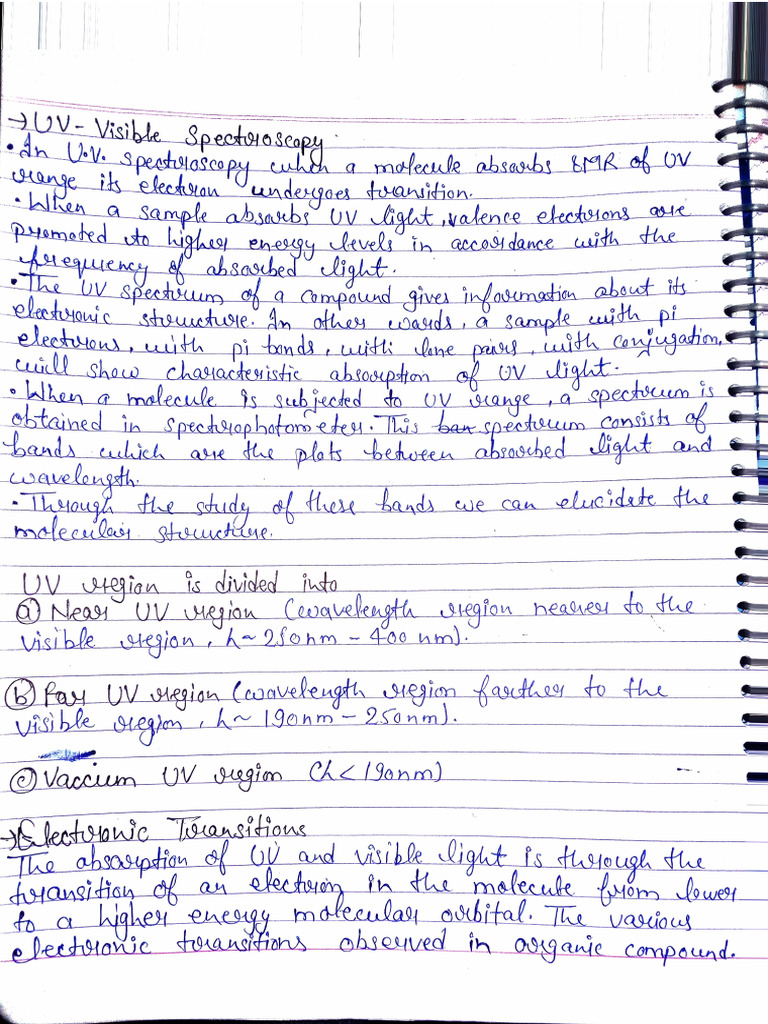 → UV - Visible Spectroscopy
• In U.V. spectroscopy when a molecule absorbs EMR of UV
range its electron undergoes transition.
• When a sample absorbs UV light, valence electrons are
promoted to higher energy levels in accordance with the
frequency of absorbed light.
• The UV spectrum of a compound gives information about its
electronic structure. In other words, a sample with pi
electrons, with pi bonds, with lone pairs, with conjugation,
will show characteristic absorption of UV light.
• When a molecule is subjected to UV range, a spectrum is
obtained in spectrophotometer. This spectrum consists of
bands which are the plots between absorbed light and
wavelength.
• Through the study of these bands we can elucidate the
molecular structure.
UV region is divided into
ⓐ Near UV region (wavelength region nearer to the
visible region, h~250nm - 400 nm).
ⓑ Far UV region (wavelength region farther to the
visible region, h~190nm - 250nm).
ⓒ Vaccium UV region (h<190nm)
→ Electronic Transitions
The absorption of UV and visible light is through the
transition of an electron in the molecule from lower
to a higher energy molecular orbital. The various
electronic transitions observed in organic compound.